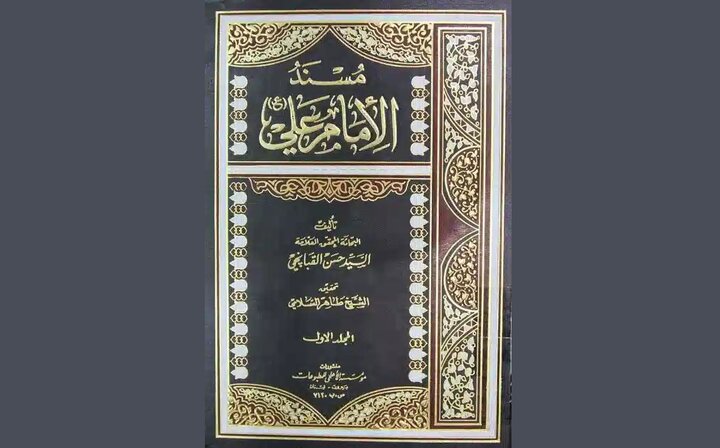 مُسْنَدُ
الإمَام عَلي (ع)
تأليف
البحاثة المحقق العلامة
السيد حسن القبانجي
تحقيق
الشيخ طاهر السلامي
المجلد الاول
منشورات
مؤسسة الأعلمي للمطبوعات
بيروت - لبنان
ص.ب ٧١٢٠